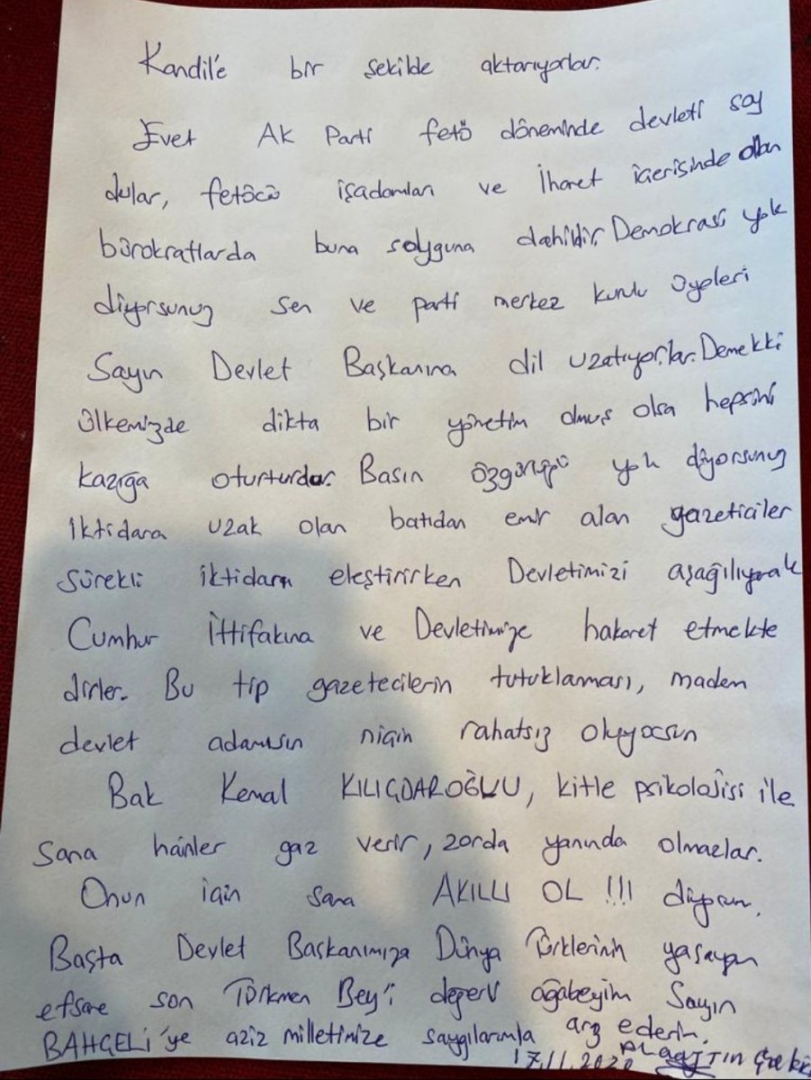 Kandil'e bir şekilde aktarıyorlar.
Evet Ak Parti fetö döneminde devleti soy
dular, fetöcü işadamları ve İhanet içerisinde olan
bürokratlarda buna soyguna dahildir. Demokrasi yok
diyorsunuz sen ve parti merkez kurulu üyeleri
Sayın Devlet Başkanına dil uzatıyorlar. Demekki
ülkemizde dikta bir yönetim olmuş olsa hepsini
kazığa oturturdar. Basın özgürlüğü yok diyorsunuz
iktidara uzak olan batıdan emir alan gazeticiler
sürekli iktidarı eleştirirken Devletimizi aşağılıyarak
Cumhur İttifakına ve Devletimize hakaret etmekte
dirler. Bu tip gazetecilerin tutuklaması, madem
devlet adamısın niçin rahatsız oluyorsun
Bak Kemal KILIÇDAROĞLU, kitle psikolojisi ile
sana hainler gaz verir, zorda yanında olmazlar.
Onun için sana AKILLI OL !!! diyorum.
Başta Devlet Başkanımıza Dünya Türklerinin yaşayan
efsane son Türkmen Bey'i değerli ağabeyim Sayın
BAHÇELİ'ye aziz milletimize saygılarımla arz ederim.
17.11.2020